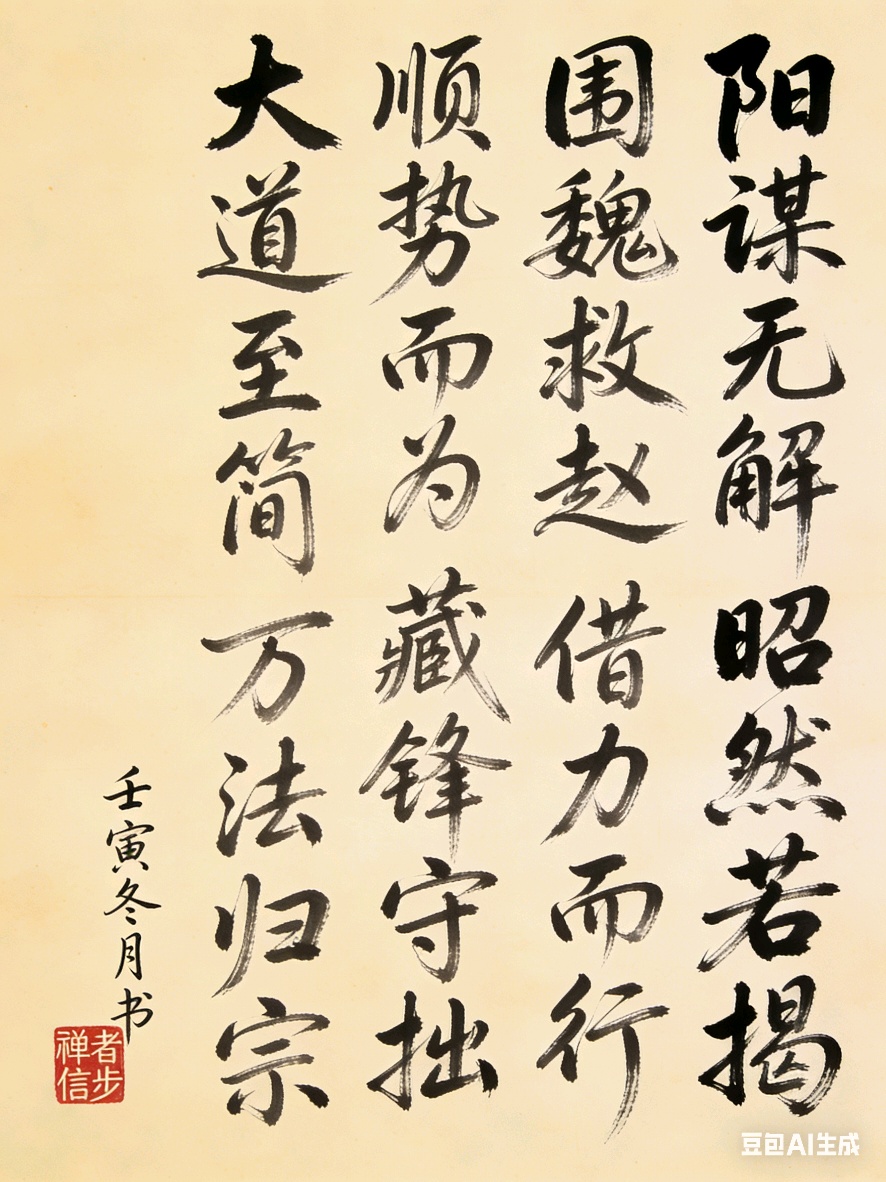 阳谋无解 昭然若揭
围魏救赵 借力而行
顺势而为 藏锋守拙
大道至简 万法归宗
壬寅冬月书
者步
禅信
豆包AI生成